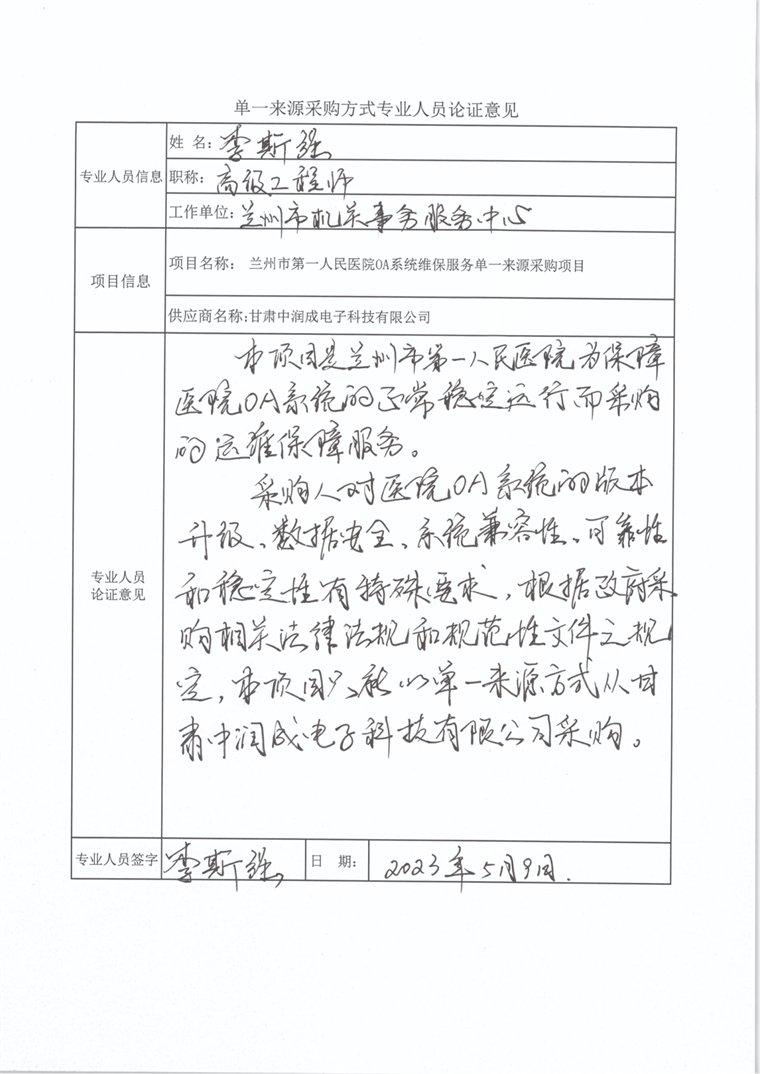 单一来源采购方式专业人员论证意见
专业人员信息
姓 名：李斯强
职称：高级工程师
工作单位：兰州市机关事务服务中心
项目信息
项目名称： 兰州市第一人民医院OA系统维保服务单一来源采购项目
供应商名称：甘肃中润成电子科技有限公司
专业人员
论证意见
本项目是兰州市第一人民医院为保障
医院OA系统的正常稳定运行而采购
的运维保障服务。
采购人对医院OA系统的版本
升级、数据安全、系统兼容性、可靠性
和稳定性有特殊要求，根据政府采
购相关法律法规和规范性文件之规
定，本项目只能以单一来源方式从甘
肃中润成电子科技有限公司采购。
专业人员签字 李斯强 日 期： 2023年5月9日.